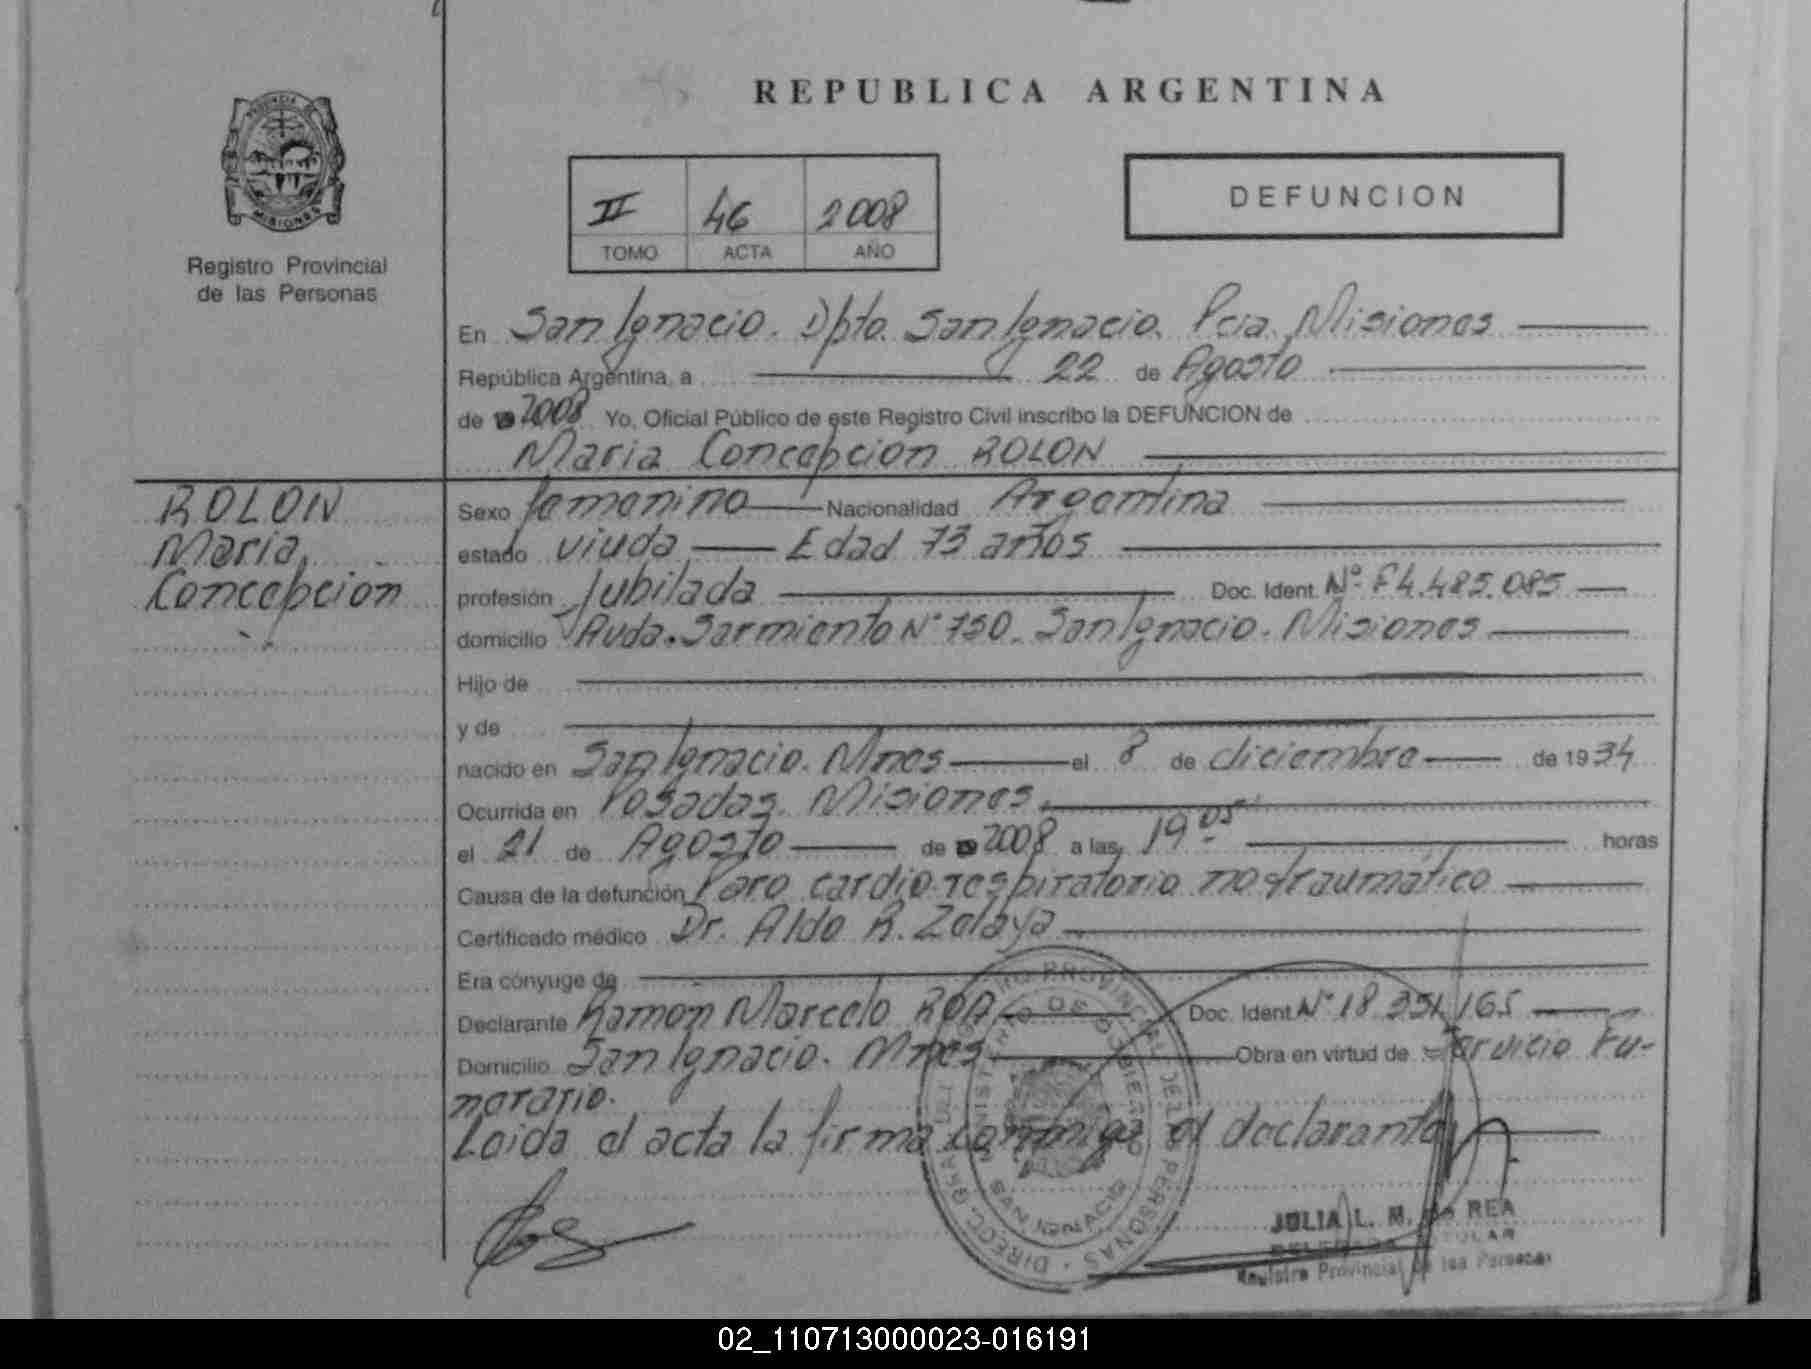 REPUBLICA ARGENTINA
PROVINCIA DE
MISIONES
Registro Provincial
de las Personas
II 46 2008
TOMO ACTA AÑO
DEFUNCION
En San Ignacio. Dpto. San Ignacio. Pcia. Misiones
República Argentina, a 22 de Agosto
de 2008 Yo, Oficial Público de este Registro Civil inscribo la DEFUNCION de
Maria Concepción ROLON
ROLON
Maria,
Concepción
Sexo femenino Nacionalidad Argentina
estado viuda Edad 73 años
profesión Jubilada Doc. Ident. Nº F4.485.085
domicilio Avda. Sarmiento Nº 750. San Ignacio. Misiones
Hijo de
y de
nacido en San Ignacio. Mnes el 8 de diciembre de 1934
Ocurrida en Posadas. Misiones.
el 21 de Agosto de 2008 a las 19 05 horas
Causa de la defunción Paro cardio respiratorio no traumatico
Certificado médico Dr. Aldo R. Zelaya
Era cónyuge de
Declarante Ramon Marcelo ROA Doc. Ident. Nº 18.351.165
Domicilio San Ignacio. Mnes Obra en virtud de Servicio Fu-
nerario.
Leida el acta la firma conmigo el declarante
JULIA L. M. de REA
Registro Provincial de las Personas
02_110713000023-016191